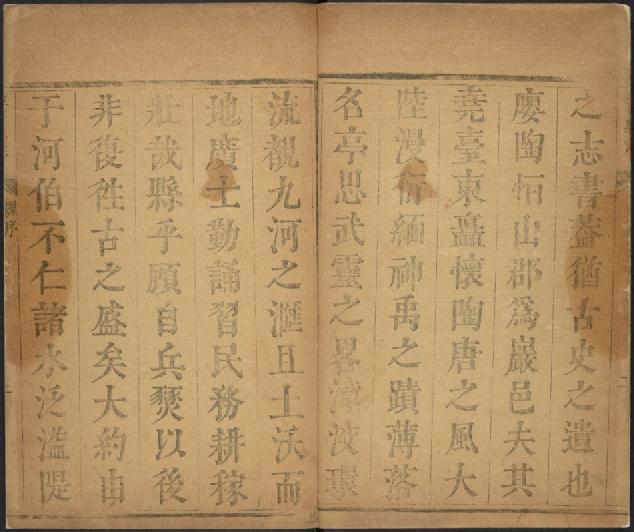 之志書葢猶古史之遺也
廮陶栢山郡爲巖邑夫其
堯臺東矗懷陶唐之風大
陸漫衍緬神禹之蹟薄落
名亭思武靈之畧漳汶環
流覩九河之滙且土沃而
地廣士勤誦習民務耕稼
壯哉縣乎顧自兵燹以後
非復徃古之盛矣大約由
于河伯不仁諸水泛滥隄
序